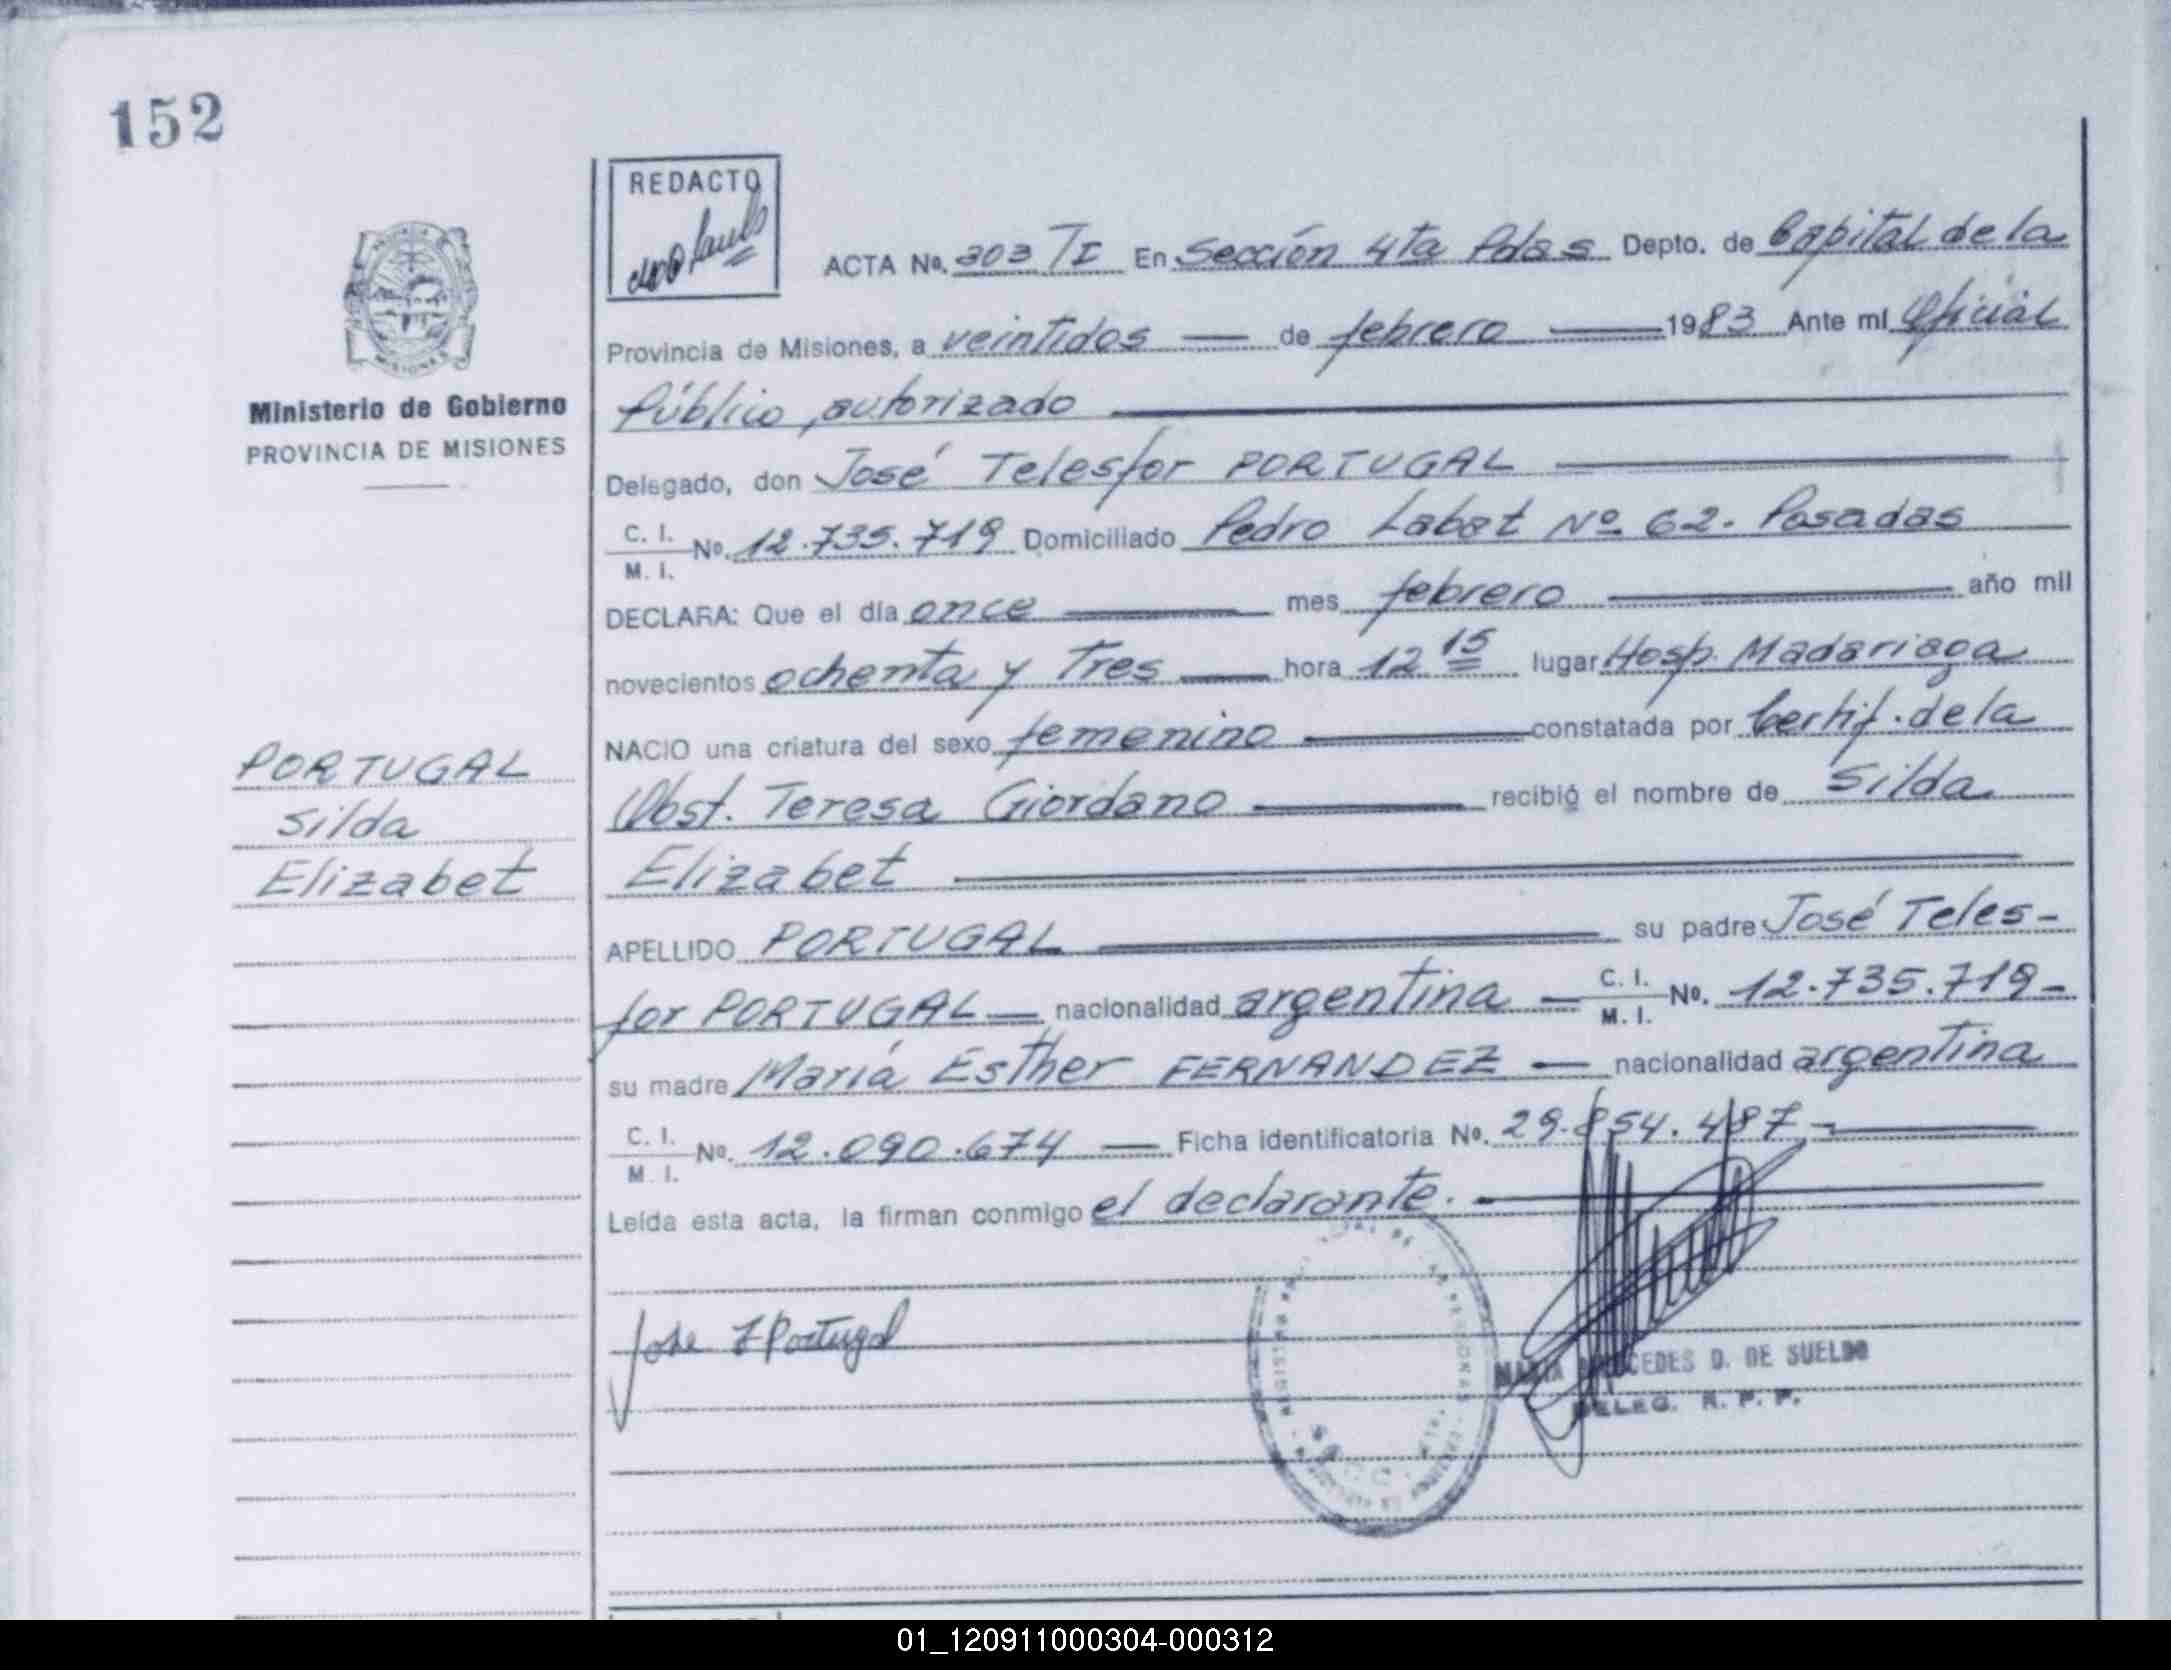 152
REDACTO
ACTA No. 303 TI En Sección 4ta Pdas Depto. de Capital de la
Provincia de Misiones, a veintidos — de febrero — 1983 Ante mí Oficial
Público, autorizado
Ministerio de Gobierno
PROVINCIA DE MISIONES
Delegado, don José Telesfor PORTUGAL
C. I.
M. I. No. 12.735.719 Domiciliado Pedro Labat Nº 62. Posadas
DECLARA: Que el día once — mes febrero — año mil
novecientos ochenta y Tres — hora 12 15 lugar Hosp. Madariaga
NACIO una criatura del sexo femenino — constatada por Certif. de la
Obst. Teresa Giordano — recibió el nombre de Silda
Elizabet
PORTUGAL
Silda
Elizabet
APELLIDO PORTUGAL — su padre José Teles-
for PORTUGAL — nacionalidad argentina — C. I. M. I. No. 12.735.719-
su madre María Esther FERNANDEZ — nacionalidad argentina
C. I.
M. I. No. 12.090.674 — Ficha identificatoria No. 29.854.487.-
Leída esta acta, la firman conmigo el declarante.
Jose T Portugal
MARIA MERCEDES D. DE SUELDO
DELEG. R. P. P.
01_120911000304-000312